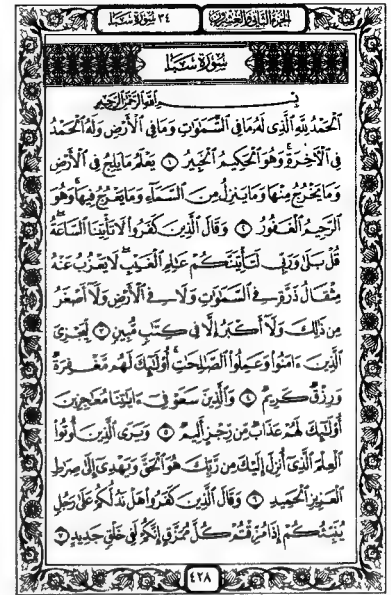 الجزء الثاني والعشرون
٣٤ سورة سبأ
سُورَةُ سَبَإٍ
بِسْمِ اللَّهِ الرَّحْمَٰنِ الرَّحِيمِ
ٱلْحَمْدُ لِلَّهِ ٱلَّذِى لَهُۥ مَا فِى ٱلسَّمَٰوَٰتِ وَمَا فِى ٱلْأَرْضِ وَلَهُ ٱلْحَمْدُ
فِى ٱلْءَاخِرَةِ ۚ وَهُوَ ٱلْحَكِيمُ ٱلْخَبِيرُ ١ يَعْلَمُ مَا يَلِجُ فِى ٱلْأَرْضِ
وَمَا يَخْرُجُ مِنْهَا وَمَا يَنزِلُ مِنَ ٱلسَّمَآءِ وَمَا يَعْرُجُ فِيهَا ۚ وَهُوَ
ٱلرَّحِيمُ ٱلْغَفُورُ ٢ وَقَالَ ٱلَّذِينَ كَفَرُوا۟ لَا تَأْتِينَا ٱلسَّاعَةُ ۖ
قُلْ بَلَىٰ وَرَبِّى لَتَأْتِيَنَّكُمْ عَٰلِمِ ٱلْغَيْبِ ۖ لَا يَعْزُبُ عَنْهُ
مِثْقَالُ ذَرَّةٍ فِى ٱلسَّمَٰوَٰتِ وَلَا فِى ٱلْأَرْضِ وَلَآ أَصْغَرُ
مِن ذَٰلِكَ وَلَآ أَكْبَرُ إِلَّا فِى كِتَٰبٍ مُّبِينٍ ٣ لِّيَجْزِىَ
ٱلَّذِينَ ءَامَنُوا۟ وَعَمِلُوا۟ ٱلصَّٰلِحَٰتِ ۚ أُو۟لَٰٓئِكَ لَهُم مَّغْفِرَةٌ
وَرِزْقٌ كَرِيمٌ ٤ وَٱلَّذِينَ سَعَوْ فِىٓ ءَايَٰتِنَا مُعَٰجِزِينَ
أُو۟لَٰٓئِكَ لَهُمْ عَذَابٌ مِّن رِّجْزٍ أَلِيمٌ ٥ وَيَرَى ٱلَّذِينَ أُوتُوا۟
ٱلْعِلْمَ ٱلَّذِىٓ أُنزِلَ إِلَيْكَ مِن رَّبِّكَ هُوَ ٱلْحَقَّ وَيَهْدِىٓ إِلَىٰ صِرَٰطِ
ٱلْعَزِيزِ ٱلْحَمِيدِ ٦ وَقَالَ ٱلَّذِينَ كَفَرُوا۟ هَلْ نَدُلُّكُمْ عَلَىٰ رَجُلٍ
يُنَبِّئُكُمْ إِذَا مُزِّقْتُمْ كُلَّ مُمَزَّقٍ إِنَّكُمْ لَفِى خَلْقٍ جَدِيدٍ ٧
٤٢٨